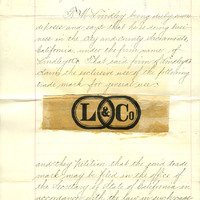 being duly sworn
deposes and says that he is doing busi-
ness in the City and County Sacramento,
California under the firm name of
Lindley & Co. That said firm of Lindley & Co
claims the exclusive use of the following
trade mark for general use
L & Co
and they petition that the said trade
mark may be filed in the office of
the Secretary of State of California in
accordance with the law